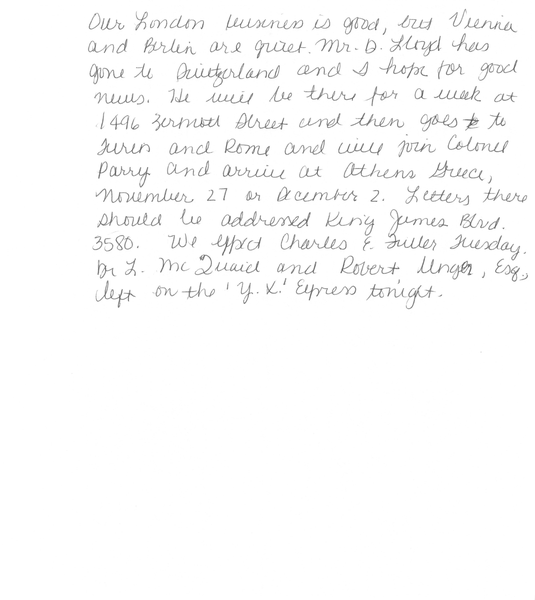 Our London business is good, but Vienna
and Berlin are quiet. Mr. D. Lloyd has
gone to Switzerland and I hope for good
news. He will be there for a week at
1496 Zermott Street and then goes to
Turin and Rome and will join Colonel
Parry and arrive at Athens Greece,
November 27 or December 2. Letters there
should be addressed King James Blvd.
3580. We expect Charles E. Fuller Tuesday.
Dr L. McQuaid and Robert Unger, Esq.,
left on the 'Y.X.' Express tonight.